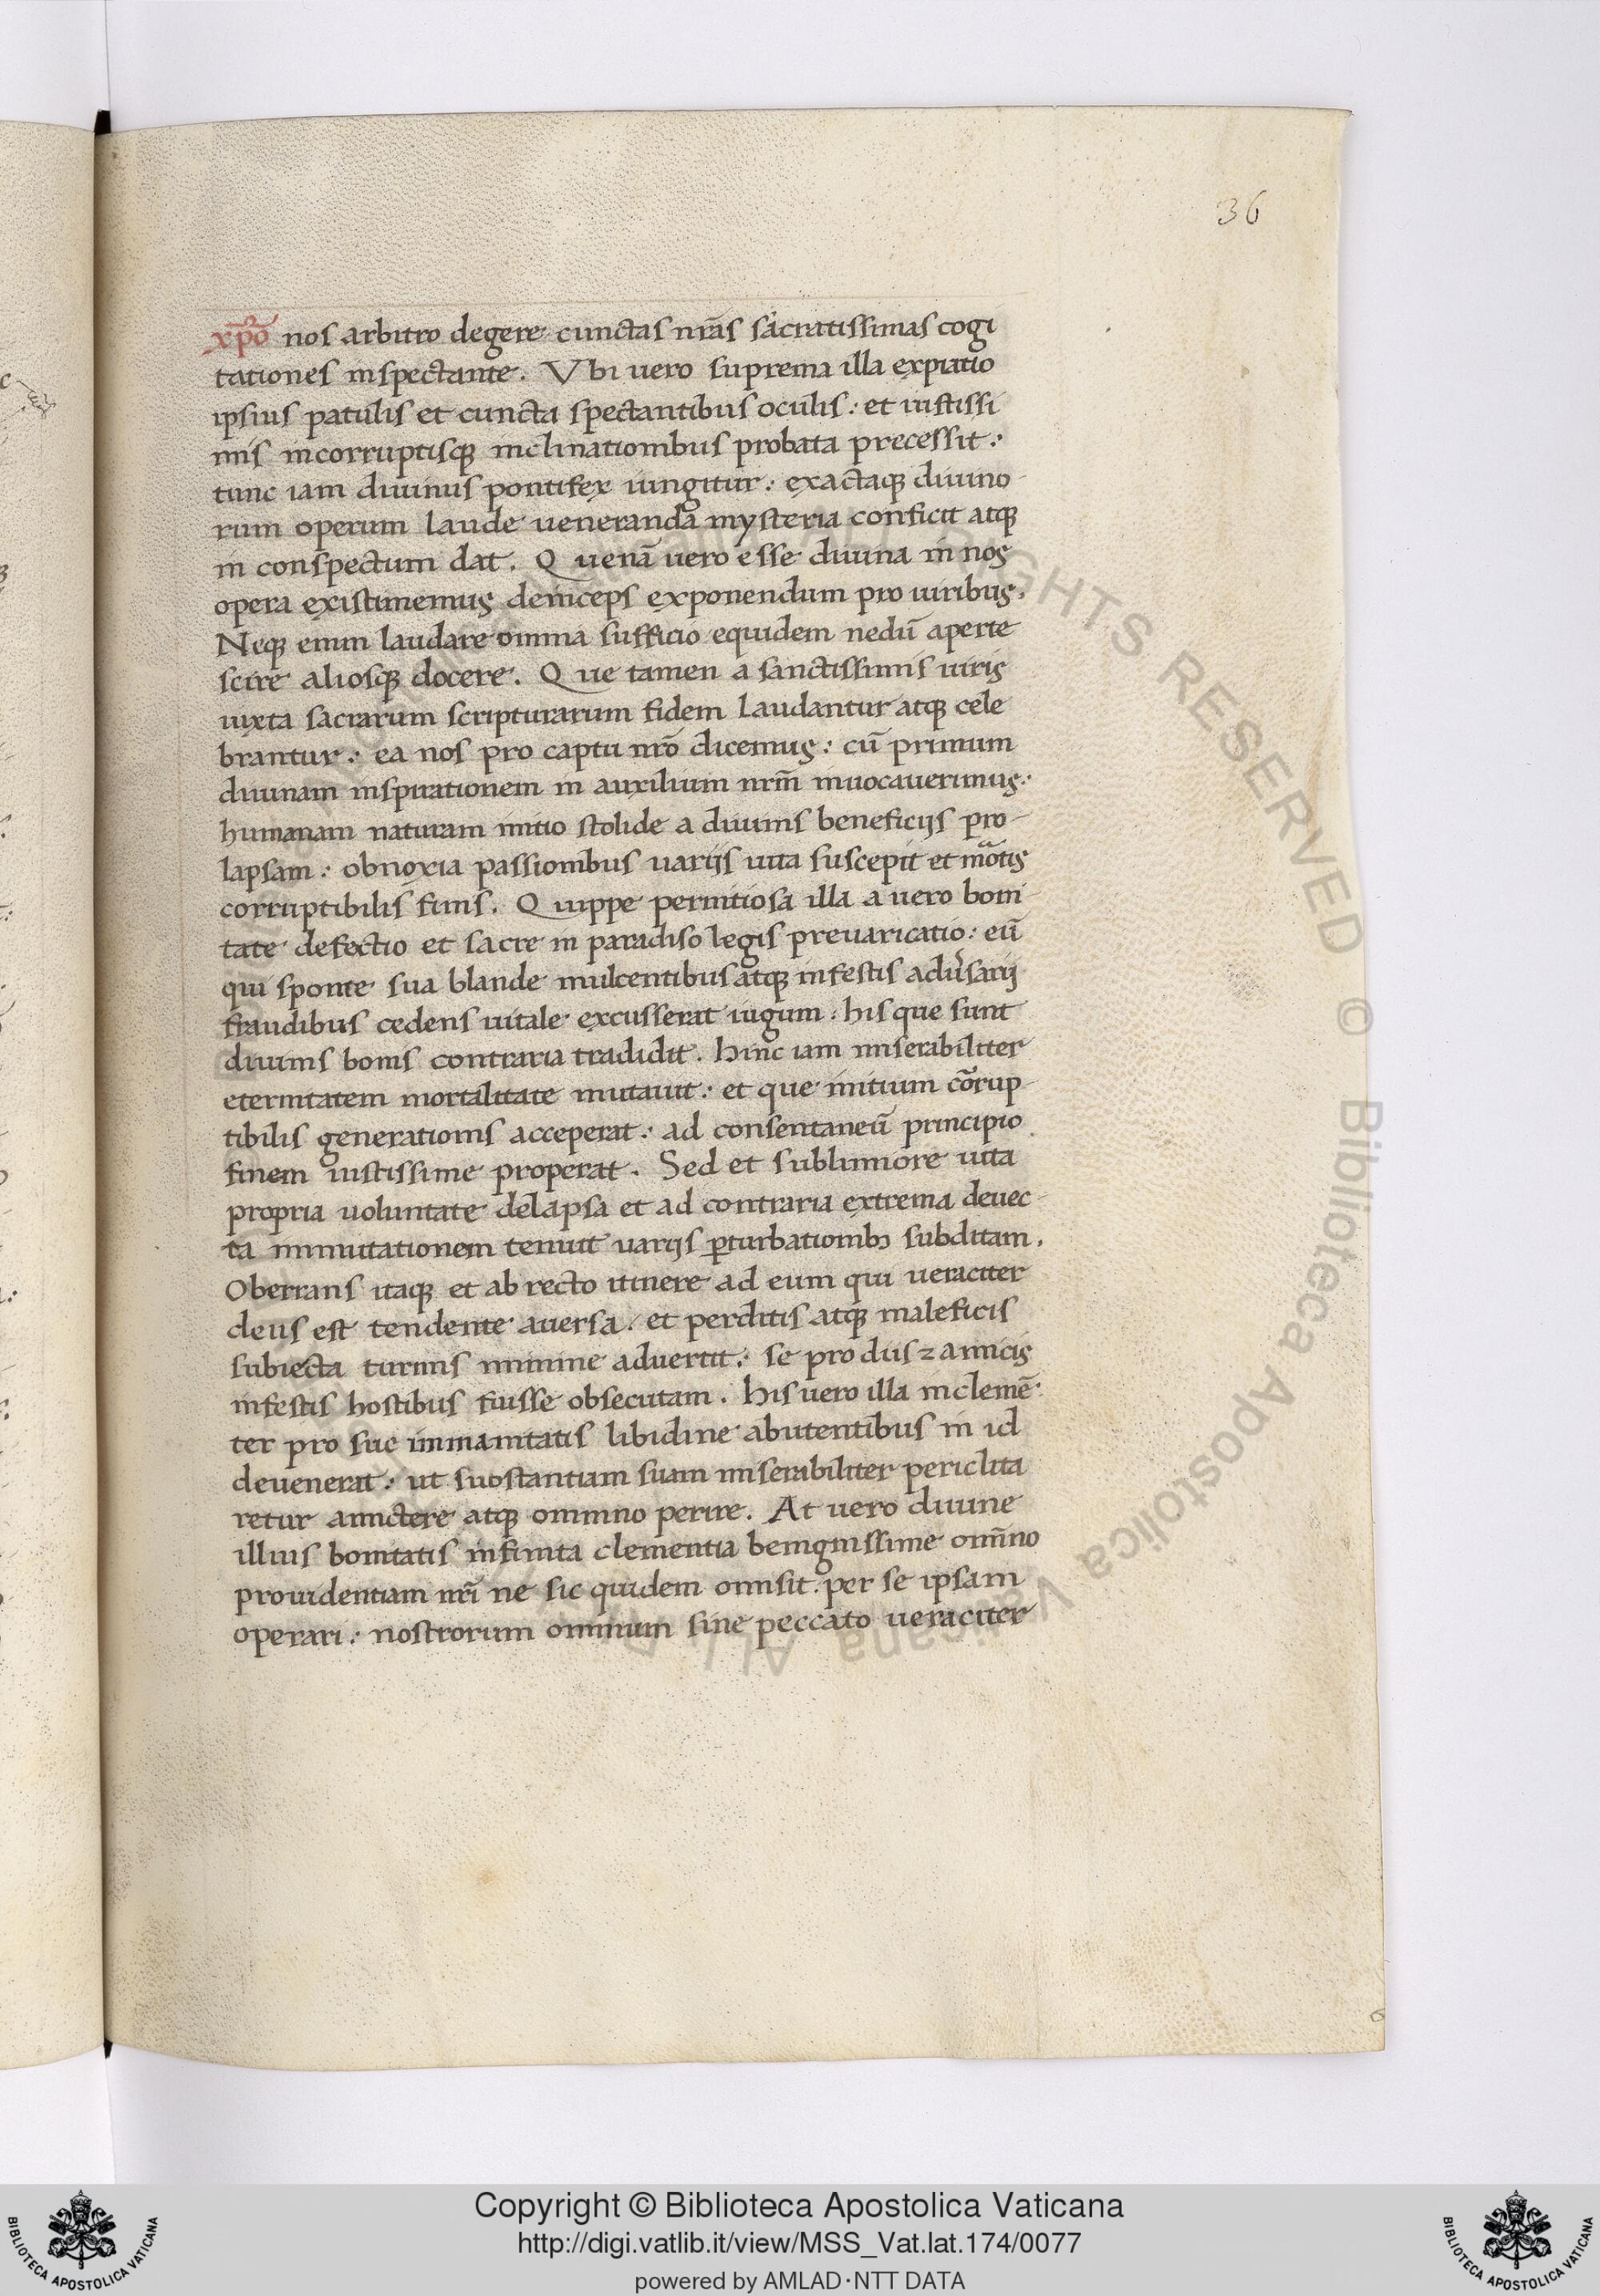 36
xp̄o nos arbitro degere cunctas nr̄as sacratissimas cogi
tationes inspectante. Vbi uero suprema illa expiatio
ipsius patulis et cuncta spectantibus oculis: et iustissi
mis incorruptisq; inclinationibus probata precessit:
tunc iam diuinus pontifex iungitur: exactaq; diuino-
rum operum laude ueneranda mysteria conficit atq;
in conspectum dat. Quenā uero esse diuina in nos
opera existimemus deinceps exponendum pro uiribus.
Neq; enim laudare omnia sufficio equidem nedū aperte
scire aliosq; docere. Que tamen a sanctissimis uiris
iuxta sacrarum scripturarum fidem laudantur atq; cele
brantur: ea nos pro captu nr̄o dicemus: cū primum
diuinam inspirationem in auxilium nrm̄ inuocauerimus:
humanam naturam initio stolide a diuinis beneficijs pro-
lapsam: obnoxia passionibus uarijs uita suscepit et mōtis
corruptibilis finis. Quippe pernitiosa illa a uero boni-
tate defectio et sacre in paradiso legis preuaricatio: eū
qui sponte sua blande mulcentibus atq; infestis adu̓sarij
fraudibus cedens uitale excusserat iugum: his que sunt
diuinis bonis contraria tradidit. hinc iam miserabiliter
eternitatem mortalitate mutauit: et que initium cōrup-
tibilis generationis acceperat: ad consentaneū principio
finem iustissime properat. Sed et sublimiore uita
propria uoluntate delapsa et ad contraria extrema deuec-
ta immutationem tenuit uarijs ꝑturbationibꝫ subditam.
Oberrans itaq; et ab recto itinere ad eum qui ueraciter
deus est tendente auersa: et perditis atq; maleficis
subiecta turmis minime aduertit: se pro diis ⁊ amicis
infestis hostibus fuisse obsecutam. his uero illa inclemē-
ter pro sue immanitatis libidine abutentibus in id
deuenerat: ut substantiam suam miserabiliter periclita
retur amictere atq; omnino perire. At uero diuine
illius bonitatis infinita clementia benignissime om̄no
prouidentiam nr̄i ne sic quidem omisit. per se ipsam
operari: nostrorum omnium sine peccato ueraciter
Copyright © Biblioteca Apostolica Vaticana
http://digi.vatlib.it/view/MSS_Vat.lat.174/0077
powered by AMLAD·NTT DATA